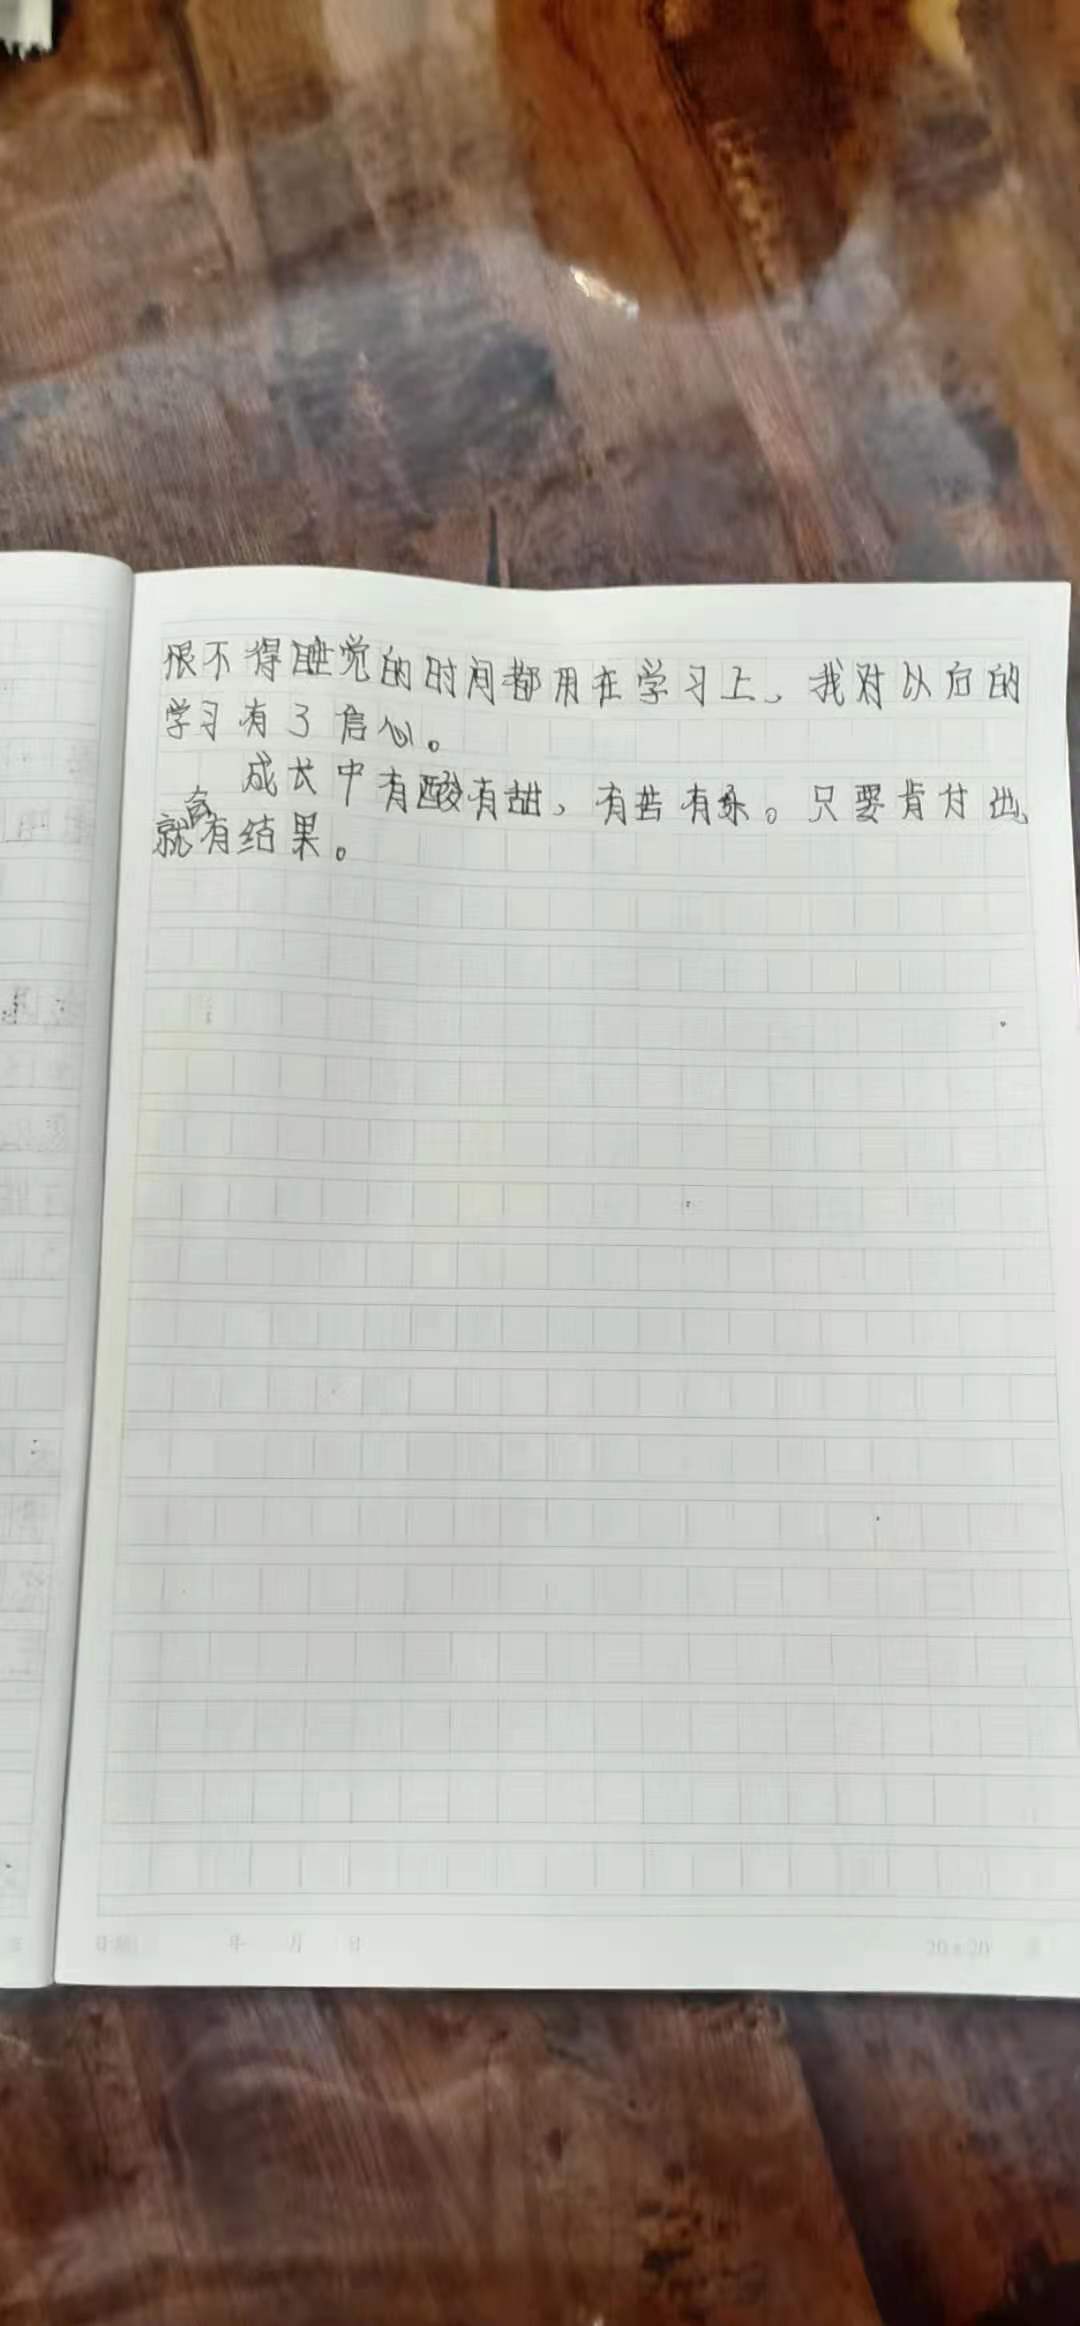 恨不得睡觉的时间都用在学习上、我对以后的
学习有了信心。
成长中有酸有甜,有苦有乐。只要肯付出
就会有结果。
年 月 日
20×20